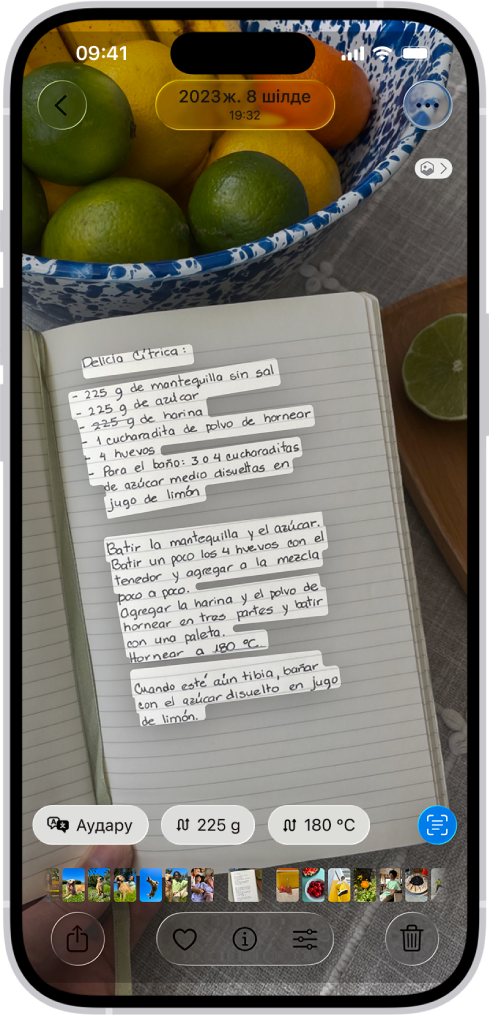 09:41
2023ж. 8 шілде
19:32
Delicia Cítrica:
- 225 g de mantequilla sin sal
- 225 g de azúcar
- 225 g de harina
- 1 cucharadita de polvo de hornear
- 4 huevos
- Para el baño: 3 o 4 cucharaditas
de azúcar medio disueltas en
jugo de limón
Batir la mantequilla y el azúcar.
Batir un poco los 4 huevos con el
tenedor y agregar a la mezcla
poco a poco.
Agregar la harina y el polvo de
hornear en tres partes y batir
con una paleta.
Hornear a 180 °C.
Cuando esté aún tibia, bañar
con el azúcar disuelto en jugo
de limón.
Аудару
225 g
180 °C